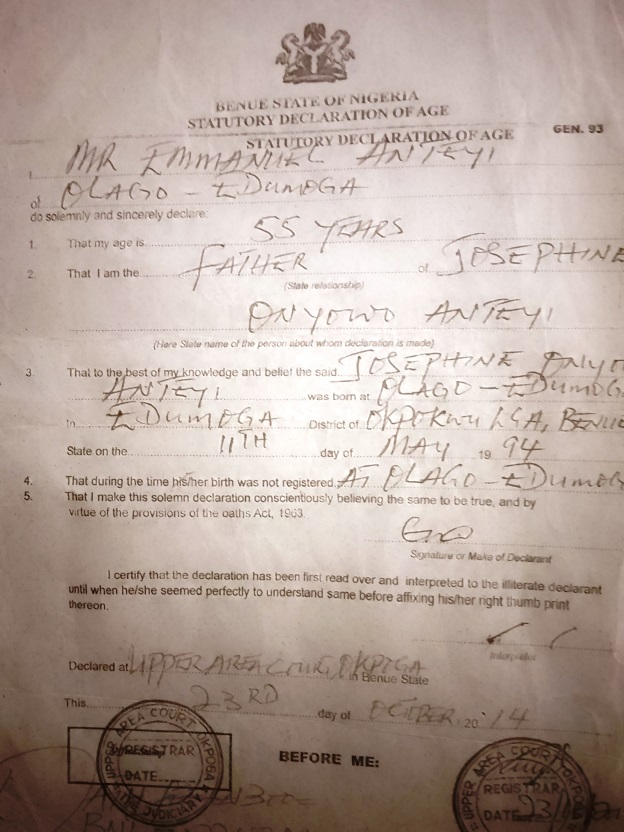 BENUE STATE OF NIGERIA
STATUTORY DECLARATION OF AGE
STATUTORY DECLARATION OF AGE GEN. 93
I MR EMMANUEL ANTEYI
of OLAGO - EDUMOGA
do solemnly and sincerely declare:
1. That my age is 55 YEARS
2. That I am the FATHER of JOSEPHINE
(State relationship)
ONYOWO ANTEYI
(Here State name of the person about whom declaration is made)
3. That to the best of my knowledge and belief the said JOSEPHINE ONYO
ANTEYI was born at OLAGO - EDUMOGA
In EDUMOGA District of OKPOKWU LGA, BENUE
State on the 11TH day of MAY 1994
4. That during the time his/her birth was not registered AT OLAGO - EDUMOG
5. That I make this solemn declaration conscientiously believing the same to be true, and by
virtue of the provisions of the oaths Act, 1963.
Signature or Make of Declarant
I certify that the declaration has been first read over and interpreted to the illiterate declarant
until when he/she seemed perfectly to understand same before affixing his/her right thumb print
thereon.
Interpreter
Declared at UPPER AREA COURT, OKPOGA in Benue State
This 23RD day of OCTOBER, 20 14
BEFORE ME:
UPPER AREA COURT OKPOGA
REGISTRAR
DATE
THE JUDICIARY
UPPER AREA COURT OKPO
REGISTRAR
DATE 23/